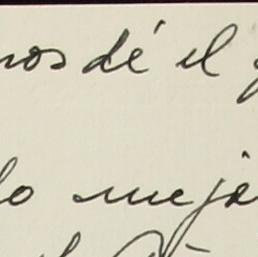 nos dé el
lo mejo
el